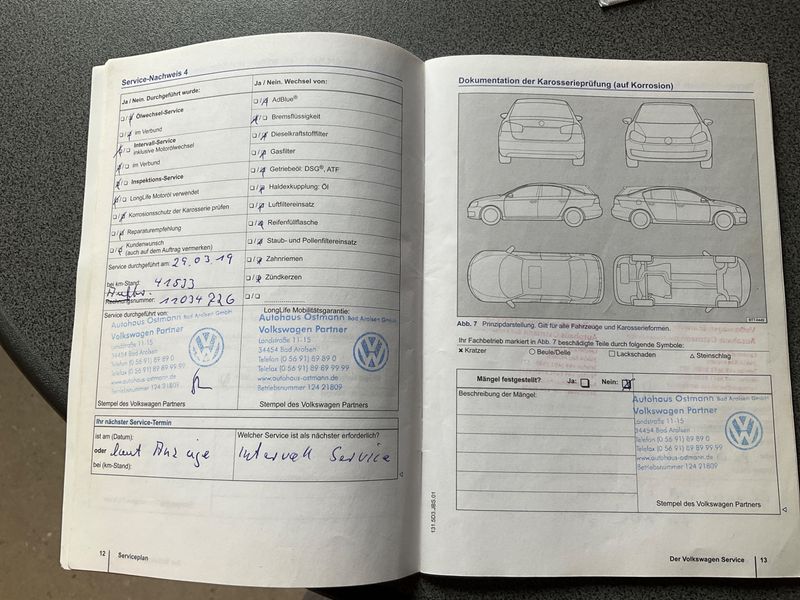 Service-Nachweis 4
Ja / Nein. Durchgeführt wurde:
Ölwechsel-Service
im Verbund
Intervall-Service
inklusive Motorölwechsel
im Verbund
Inspektions-Service
LongLife Motoröl verwendet
Korrosionsschutz der Karosserie prüfen
Reparaturempfehlung
Kundenwunsch
(auch auf dem Auftrag vermerken)
Service durchgeführt am: 29.03.19
bei km-Stand: 41533
Rechnungsnummer: 11034726
Service durchgeführt von:
Autohaus Ostmann Bad Arolsen GmbH
Volkswagen Partner
Landstraße 11-15
34454 Bad Arolsen
Telefon (0 56 91) 89 89 0
Telefax (0 56 91) 89 89 99 99
www.autohaus-ostmann.de
Betriebsnummer 124 21809
Stempel des Volkswagen Partners
Ja / Nein. Wechsel von:
AdBlue®
Bremsflüssigkeit
Dieselkraftstofffilter
Gasfilter
Getriebeöl: DSG®, ATF
Haldexkupplung: Öl
Luftfiltereinsatz
Reifenfüllflasche
Staub- und Pollenfiltereinsatz
Zahnriemen
Zündkerzen
LongLife Mobilitätsgarantie:
Autohaus Ostmann Bad Arolsen GmbH
Volkswagen Partner
Landstraße 11-15
34454 Bad Arolsen
Telefon (0 56 91) 89 89 0
Telefax (0 56 91) 89 89 99 99
www.autohaus-ostmann.de
Betriebsnummer 124 21809
Stempel des Volkswagen Partners
Ihr nächster Service-Termin
ist am (Datum):
oder laut Anzeige
bei (km-Stand):
Welcher Service ist als nächster erforderlich?
Intervall Service
12 Serviceplan
Dokumentation der Karosserieprüfung (auf Korrosion)
Abb. 7 Prinzipdarstellung. Gilt für alle Fahrzeuge und Karosserieformen.
Ihr Fachbetrieb markiert in Abb. 7 beschädigte Teile durch folgende Symbole:
× Kratzer ○ Beule/Delle □ Lackschaden △ Steinschlag
Mängel festgestellt? Ja: Nein:
Beschreibung der Mängel:
Autohaus Ostmann Bad Arolsen GmbH
Volkswagen Partner
Landstraße 11-15
34454 Bad Arolsen
Telefon (0 56 91) 89 89 0
Telefax (0 56 91) 89 89 99 99
www.autohaus-ostmann.de
Betriebsnummer 124 21809
Stempel des Volkswagen Partners
131.5D3.JBI5.01
Der Volkswagen Service 13